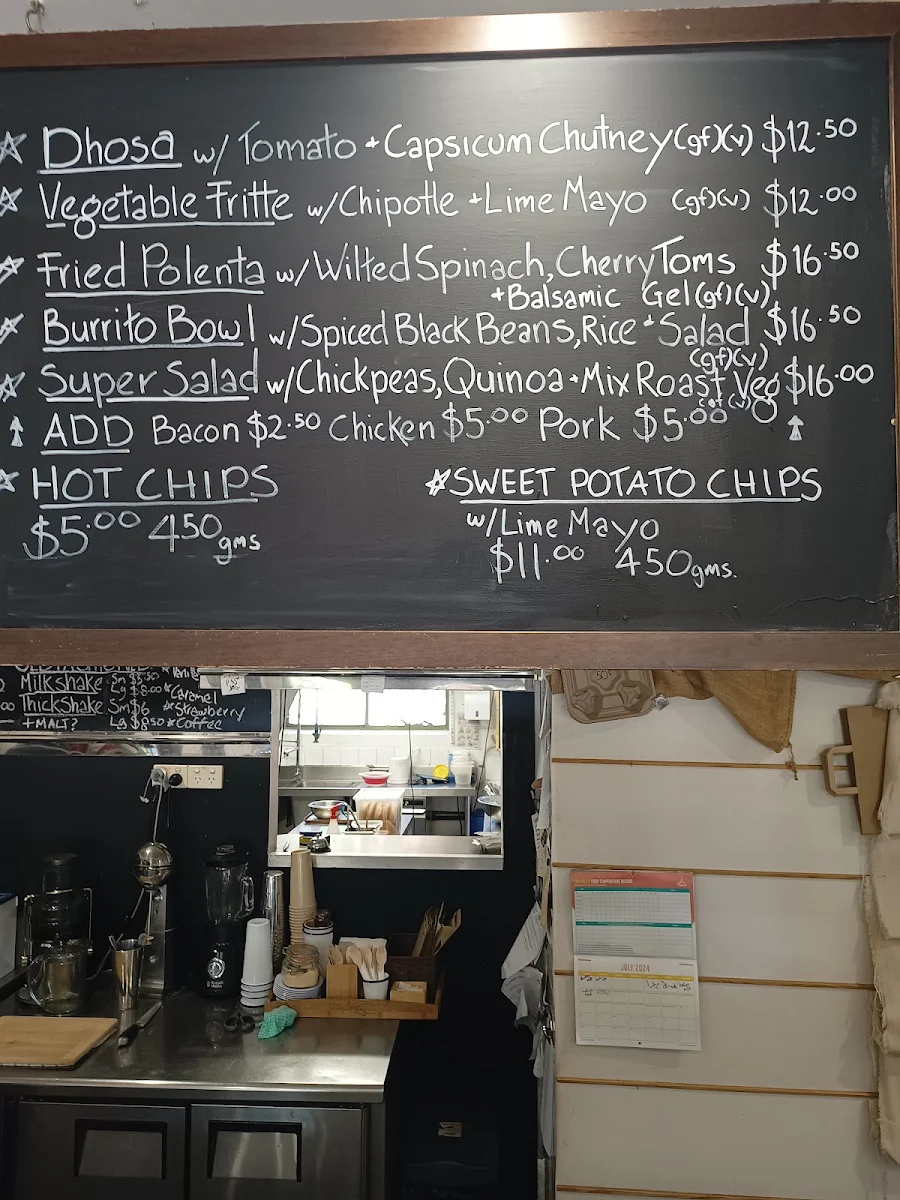 Dhosa w/ Tomato + Capsicum Chutney (gf)(v) $12.50
Vegetable Fritte w/ Chipotle + Lime Mayo (gf)(v) $12.00
Fried Polenta w/ Wilted Spinach, Cherry Toms $16.50
+ Balsamic Gel (gf)(v)
Burrito Bowl w/ Spiced Black Beans, Rice + Salad $16.50
(gf)(v)
Super Salad w/ Chickpeas, Quinoa + Mix Roast Veg $16.00
(gf)(v)
ADD Bacon $2.50 Chicken $5.00 Pork $5.00
HOT CHIPS
$5.00 450gms
SWEET POTATO CHIPS
w/ Lime Mayo
$11.00 450gms.
Milkshake Sm $5.50
Lg $8.00 Caramel
ThickShake Sm $6 Strawberry
+MALT? Lg $8.50 Coffee
JULY 2024